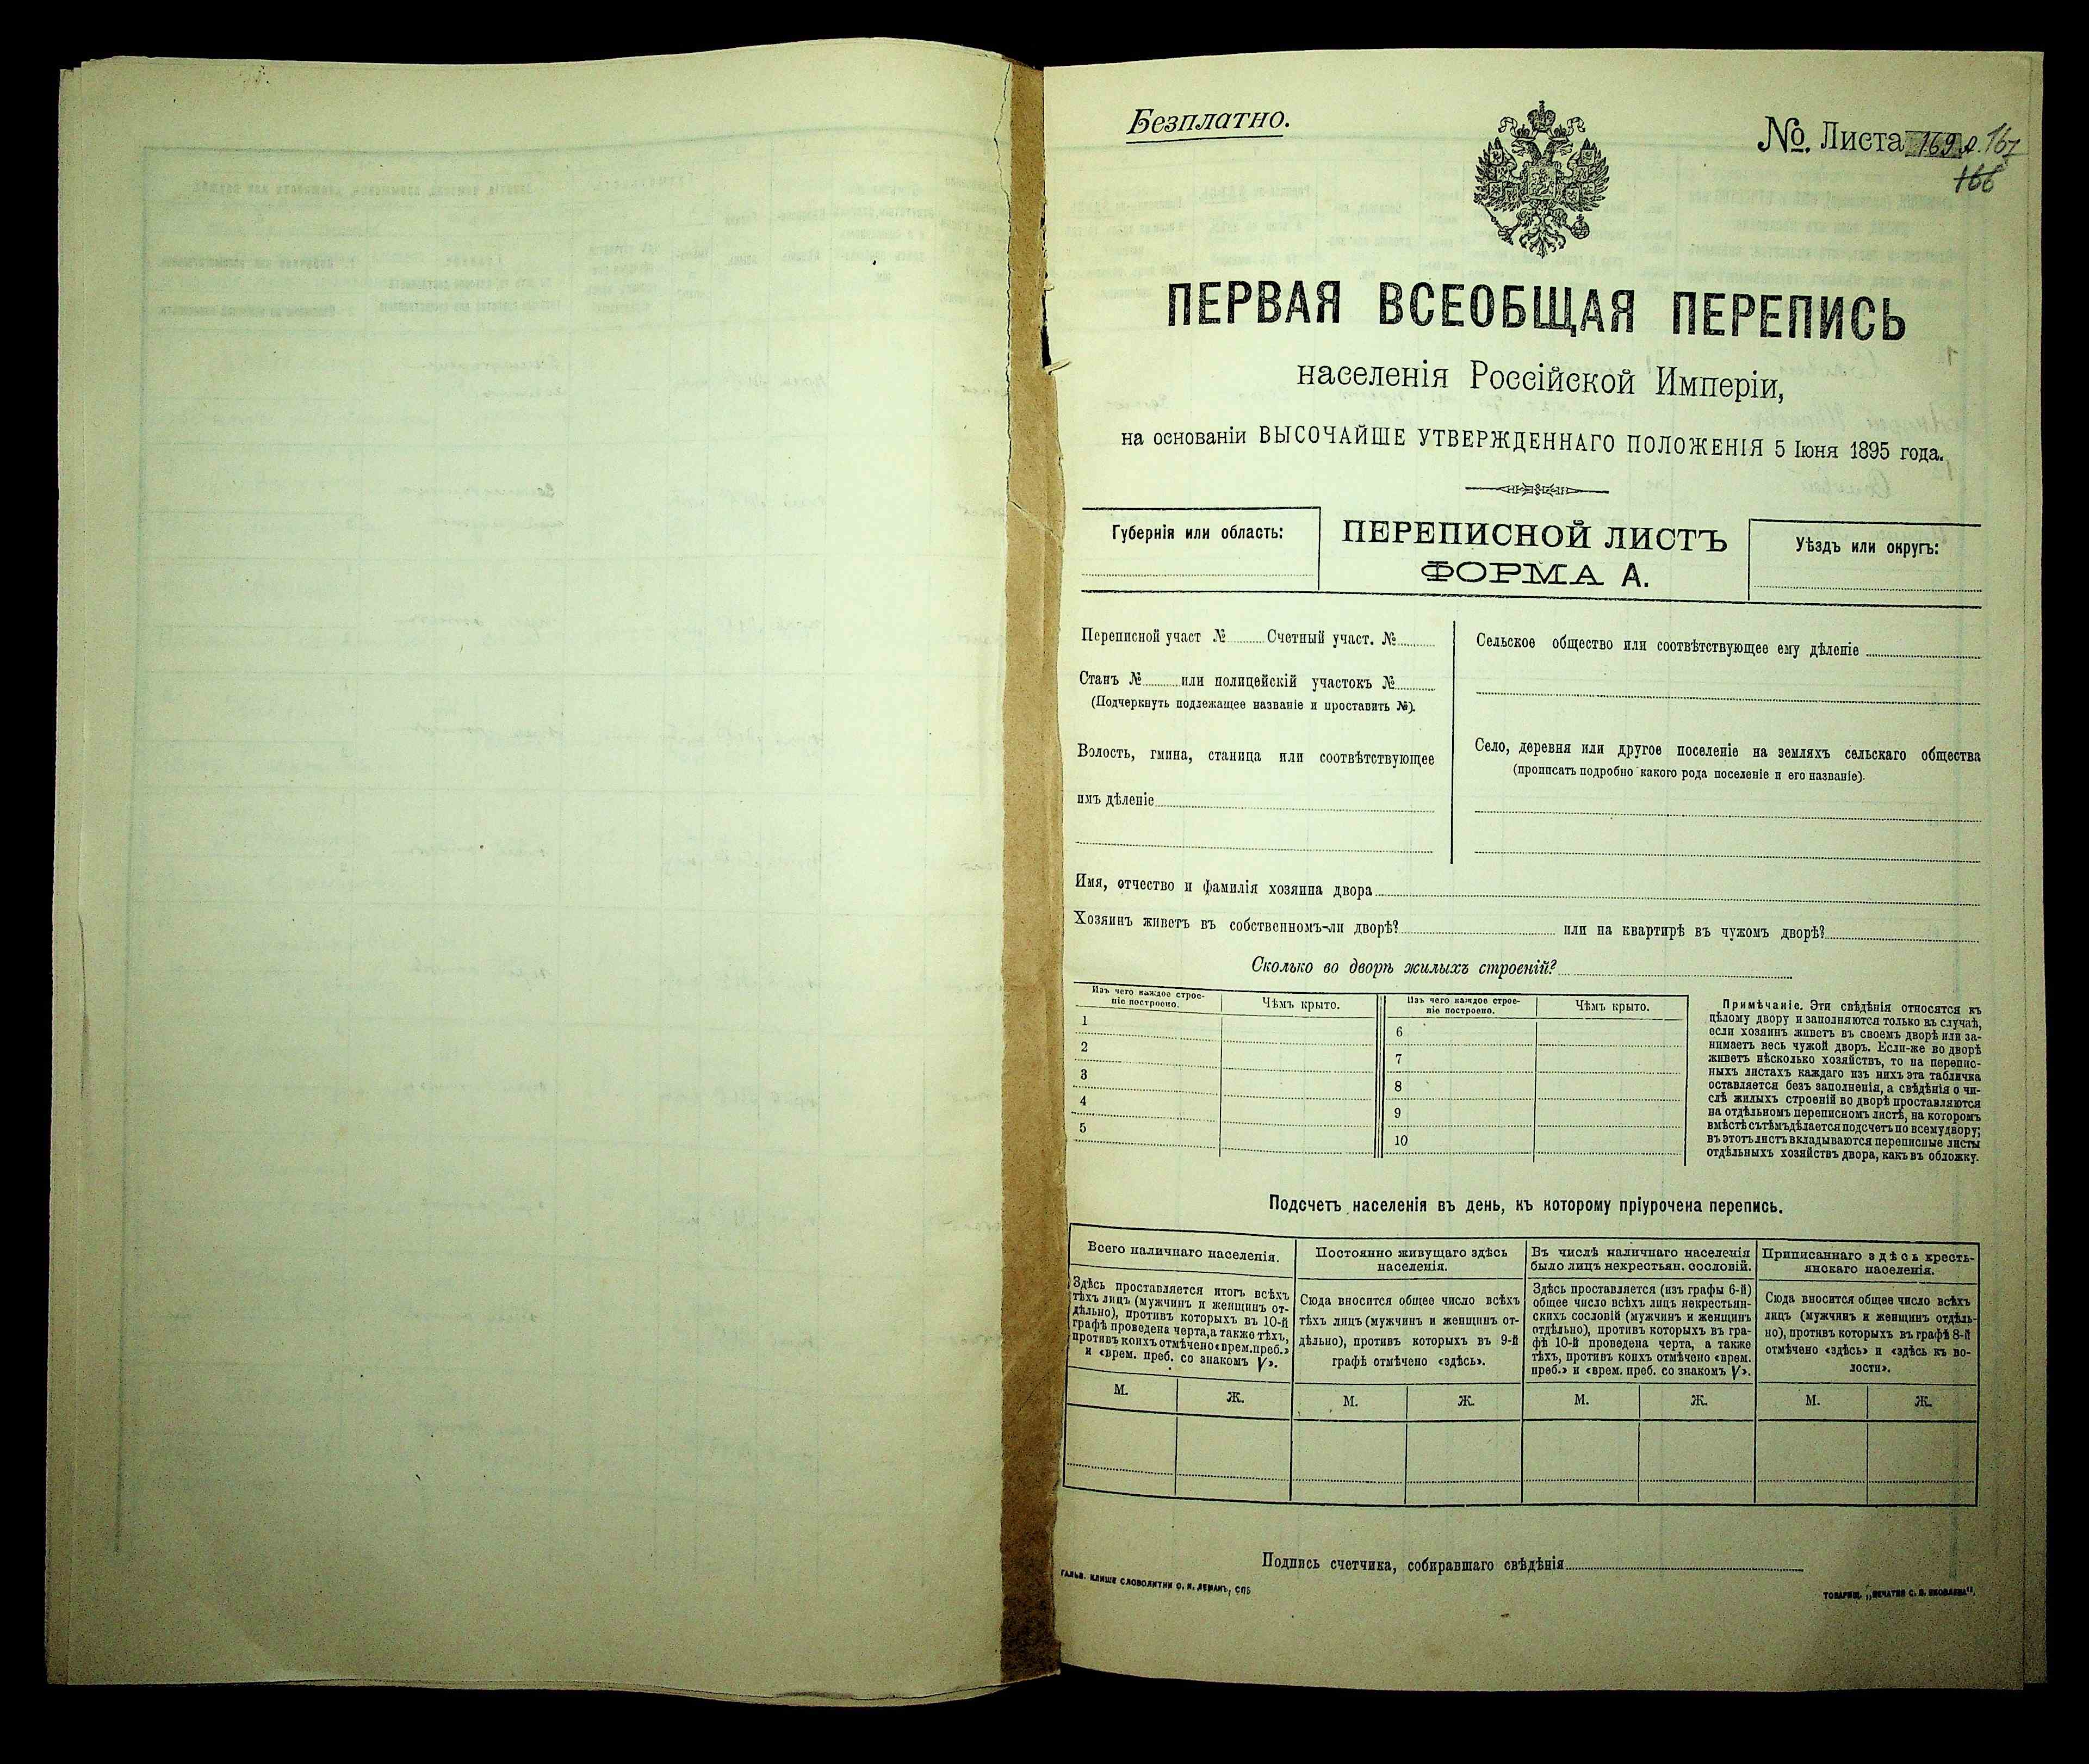 Безплатно.
№. Листа 169 л. 167
166
ПЕРВАЯ ВСЕОБЩАЯ ПЕРЕПИСЬ
населенія Россійской Имперіи,
на основаніи ВЫСОЧАЙШЕ УТВЕРЖДЕННАГО ПОЛОЖЕНІЯ 5 Іюня 1895 года.
Губернія или область:
ПЕРЕПИСНОЙ ЛИСТЪ
ФОРМА А.
Уѣздъ или округъ:
Переписной участ № Счетный участ. №
Станъ № или полицейскій участокъ №
(Подчеркнуть подлежащее названіе и проставить №).
Волость, гмина, станица или соотвѣтствующее
имъ дѣленіе
Сельское общество или соотвѣтствующее ему дѣленіе
Село, деревня или другое поселеніе на земляхъ сельскаго общества
(прописать подробно какого рода поселеніе и его названіе).
Имя, отчество и фамилія хозяина двора
Хозяинъ живетъ въ собственномъ-ли дворѣ? или на квартирѣ въ чужомъ дворѣ?
Сколько во дворѣ жилыхъ строеній?
Изъ чего каждое строе-
ніе построено.
Чѣмъ крыто.
1
2
3
4
5
Изъ чего каждое строе-
ніе построено.
Чѣмъ крыто.
6
7
8
9
10
Примѣчаніе. Эти свѣдѣнія относятся къ
цѣлому двору и заполняются только въ случаѣ,
если хозяинъ живетъ въ своемъ дворѣ или за-
нимаетъ весь чужой дворъ. Если-же во дворѣ
живетъ нѣсколько хозяйствъ, то на перепис-
ныхъ листахъ каждаго изъ нихъ эта табличка
оставляется безъ заполненія, а свѣдѣнія о чи-
слѣ жилыхъ строеній во дворѣ проставляются
на отдѣльномъ переписномъ листѣ, на которомъ
вмѣстѣ съ тѣмъ дѣлается подсчетъ по всему двору;
въ этотъ листъ вкладываются переписные листы
отдѣльныхъ хозяйствъ двора, какъ въ обложку.
Подсчетъ населенія въ день, къ которому пріурочена перепись.
Всего наличнаго населенія.
Здѣсь проставляется итогъ всѣхъ
тѣхъ лицъ (мужчинъ и женщинъ от-
дѣльно), противъ которыхъ въ 10-й
графѣ проведена черта, а также тѣхъ,
противъ коихъ отмѣчено «врем. преб.»
и «врем. преб. со знакомъ V».
М. Ж.
Постоянно живущаго здѣсь
населенія.
Сюда вносится общее число всѣхъ
тѣхъ лицъ (мужчинъ и женщинъ от-
дѣльно), противъ которыхъ въ 9-й
графѣ отмѣчено «здѣсь».
М. Ж.
Въ числѣ наличнаго населенія
было лицъ некрестьян. сословій.
Здѣсь проставляется (изъ графы 6-й)
общее число всѣхъ лицъ некрестьян-
скихъ сословій (мужчинъ и женщинъ
отдѣльно), противъ которыхъ въ гра-
фѣ 10-й проведена черта, а также
тѣхъ, противъ коихъ отмѣчено «врем.
преб.» и «врем. преб. со знакомъ V».
М. Ж.
Приписаннаго здѣсь кресть-
янскаго населенія.
Сюда вносится общее число всѣхъ
лицъ (мужчинъ и женщинъ отдѣль-
но), противъ которыхъ въ графѣ 8-й
отмѣчено «здѣсь» и «здѣсь къ во-
лости».
М. Ж.
Подпись счетчика, собиравшаго свѣдѣнія
ГАЛЬВ. КЛИШЕ СЛОВОЛИТНИ О. И. ЛЕМАНЪ, СПБ
ТОВАРИЩ. „ПЕЧАТНЯ С. П. ЯКОВЛЕВА".